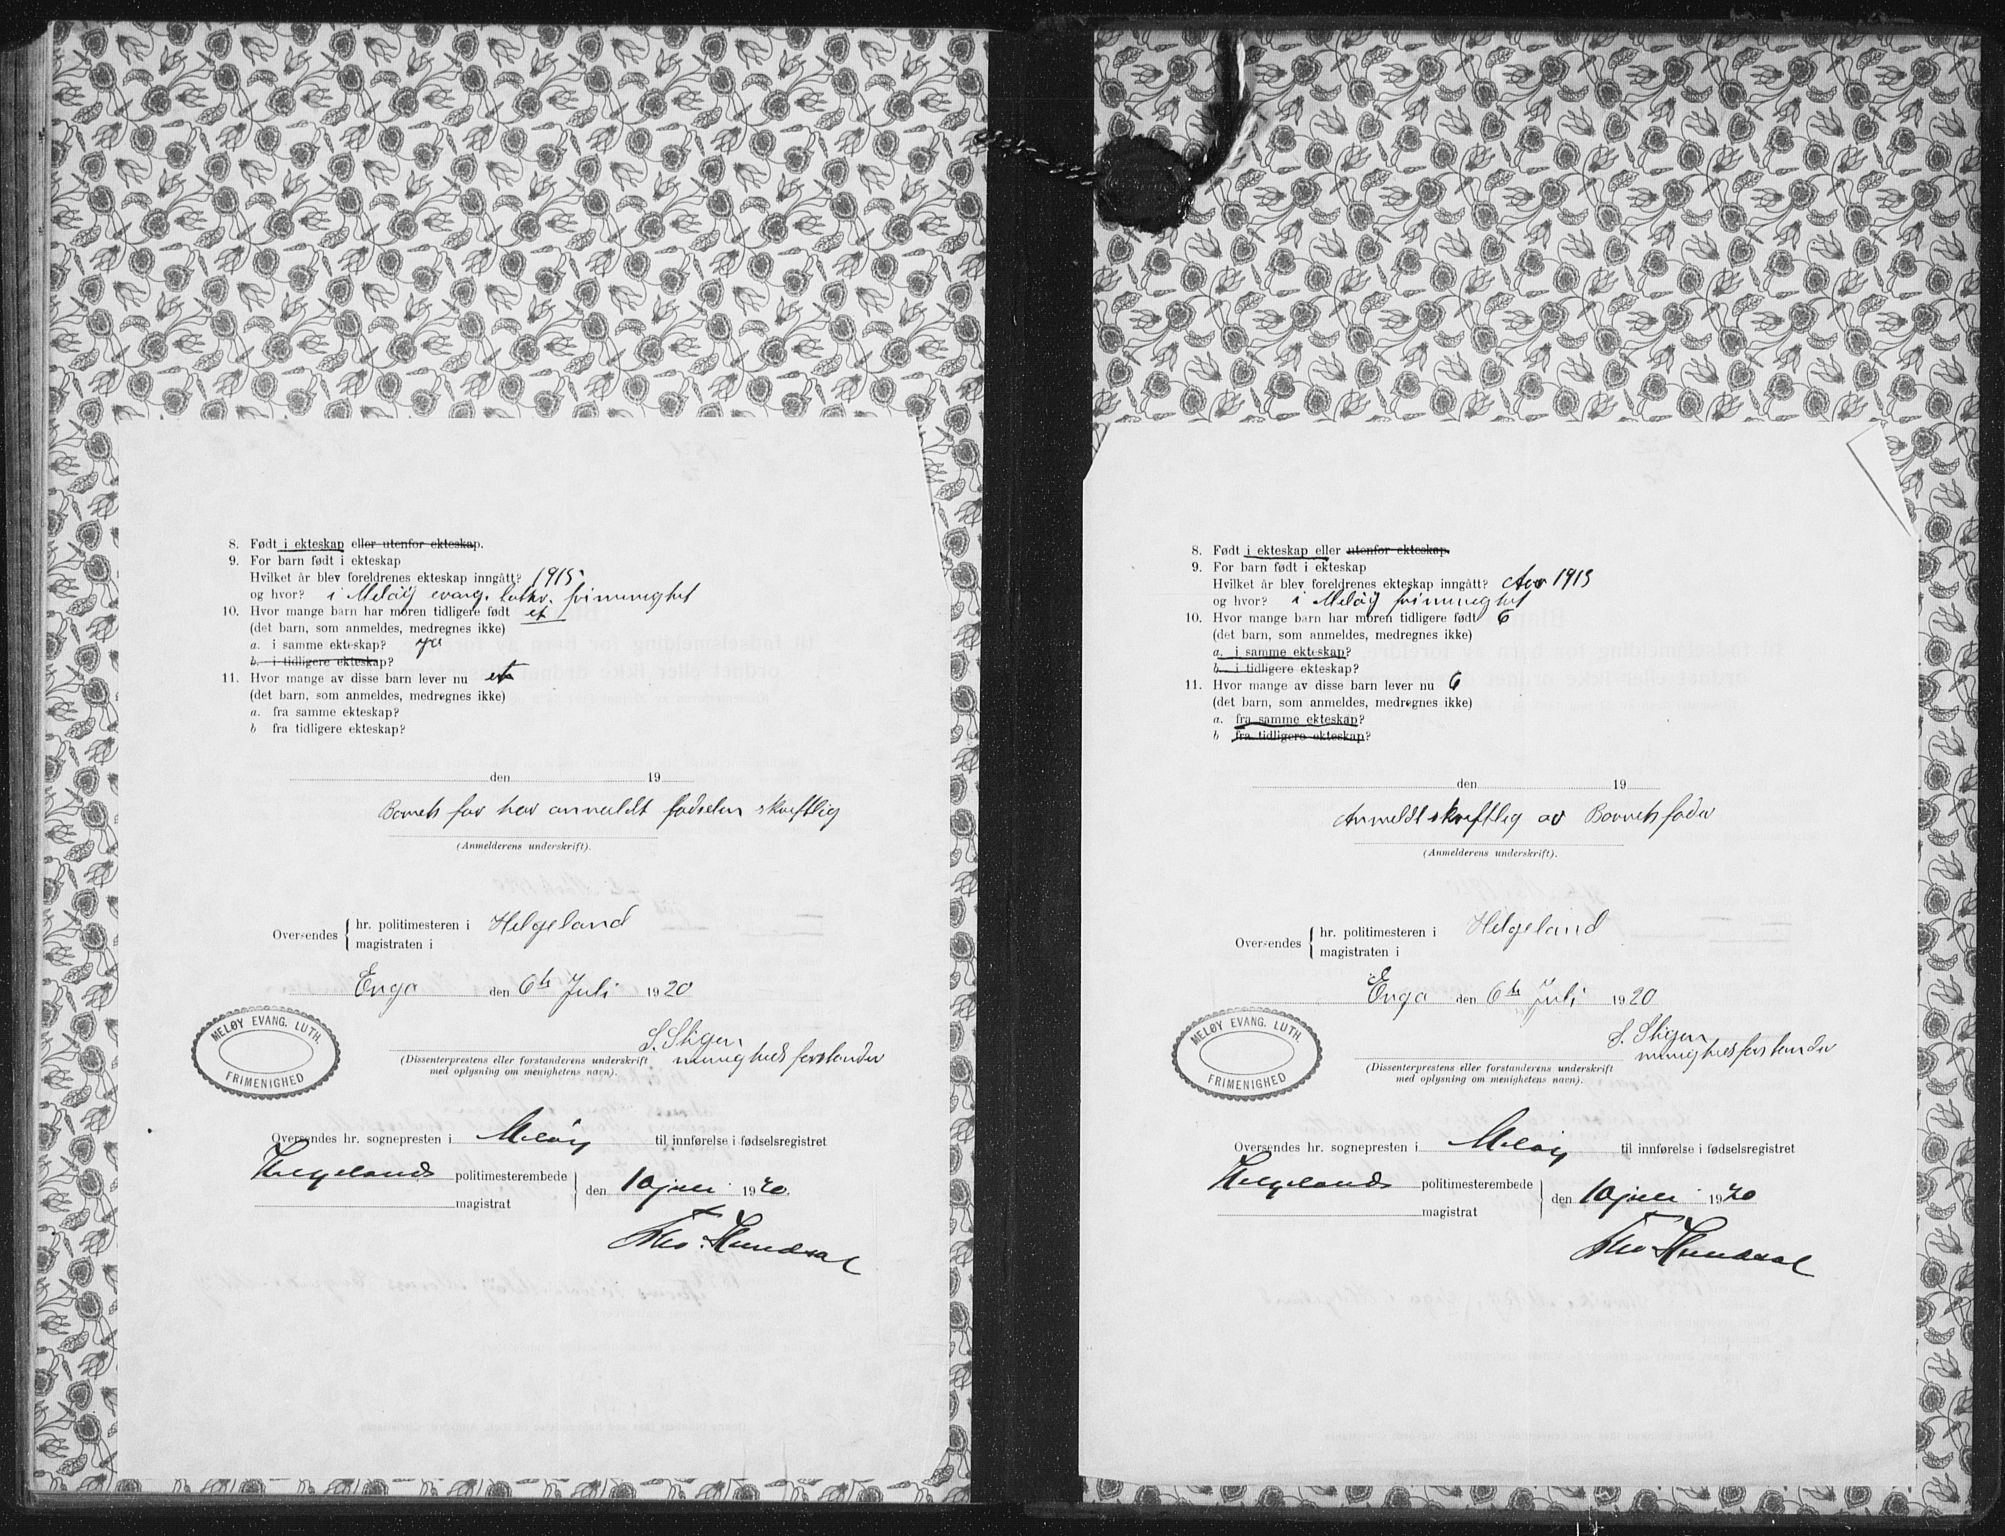 8. Født i ekteskap eller utenfor ekteskap.
9. For barn født i ekteskap
Hvilket år blev foreldrenes ekteskap inngått? 1915.
og hvor? i Meløy evang. luth. frimenighet
10. Hvor mange barn har moren tidligere født et
(det barn, som anmeldes, medregnes ikke)
a. i samme ekteskap? ja
b. i tidligere ekteskap?
11. Hvor mange av disse barn lever nu et
(det barn, som anmeldes, medregnes ikke)
a. fra samme ekteskap?
b fra tidligere ekteskap?
den 19
Barnets far har anmeldt fødselen skriftlig
(Anmelderens underskrift).
Oversendes { hr. politimesteren i Helgeland
magistraten i
Enga den 6te Juli 1920
MELØY EVANG. LUTH.
FRIMENIGHED
S. Stigen
(Dissenterprestens eller forstanderens underskrift menighedsforstander
med oplysning om menighetens navn).
Oversendes hr. sognepresten i Meløy til innførelse i fødselsregistret
Helgelands politimesterembede } den 10 juli 1920.
magistrat
8. Født i ekteskap eller utenfor ekteskap.
9. For barn født i ekteskap
Hvilket år blev foreldrenes ekteskap inngått? Aar 1913
og hvor? i Meløy frimenighet
10. Hvor mange barn har moren tidligere født 6
(det barn, som anmeldes, medregnes ikke)
a. i samme ekteskap?
b. i tidligere ekteskap?
11. Hvor mange av disse barn lever nu 6
(det barn, som anmeldes, medregnes ikke)
a. fra samme ekteskap?
b fra tidligere ekteskap?
den 19
Anmeldt skriftlig av Barnets fader
(Anmelderens underskrift).
Oversendes { hr. politimesteren i Helgeland
magistraten i
Enga den 6te Juli 1920
MELØY EVANG. LUTH.
FRIMENIGHED
S. Stigen
menighedsforstander
(Dissenterprestens eller forstanderens underskrift
med oplysning om menighetens navn).
Oversendes hr. sognepresten i Meløy til innførelse i fødselsregistret
Helgelands politimesterembede } den 10 juli 1920
magistrat